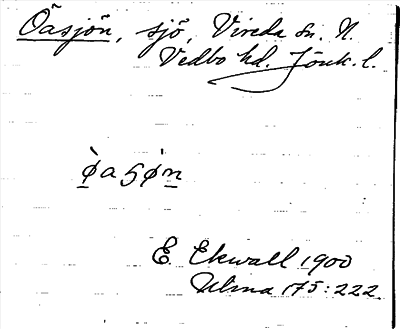 Öasjön, sjö, Vireda sn. N.
Vedbo hd. Jönk. l.
E. Ekwall 1900
Ulma 175:222.